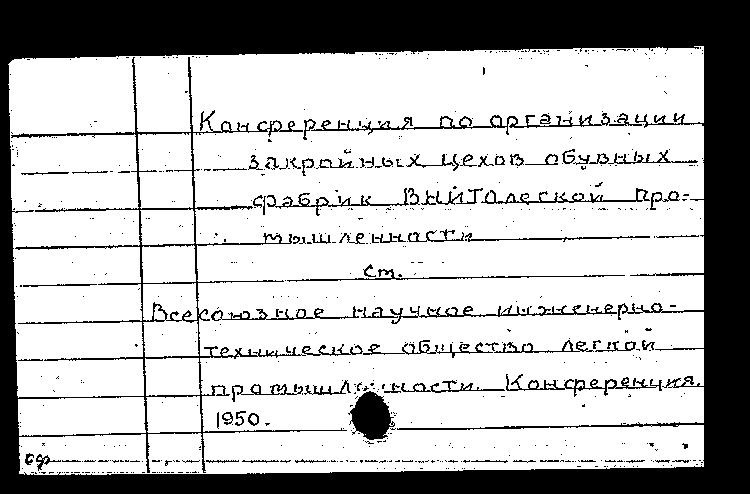 Конференция по организации
закройных цехов обувных
фабрик ВНИТОлегкой про-
мышленности
см.
Всесоюзное научное инженерно-
техническое общество легкой
промышленности. Конференция.
1950.
еф